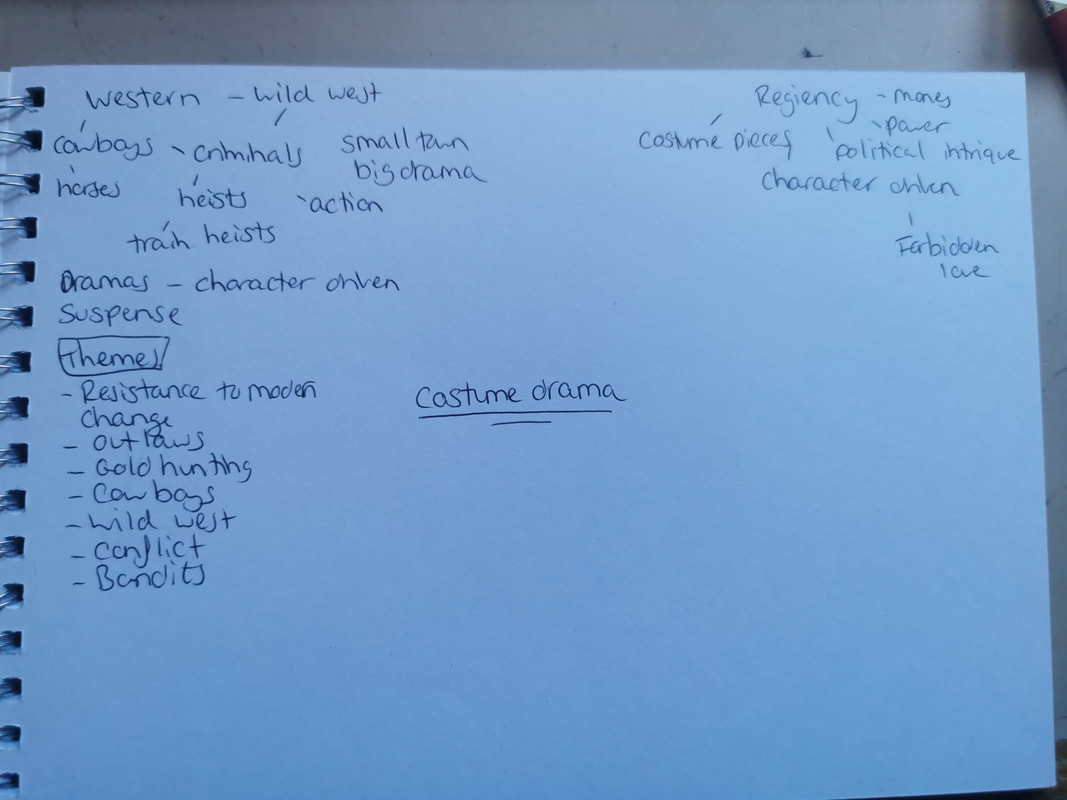 Western - wild west
cowboys
criminals
small town
big drama
horses
heists
action
train heists
Dramas - character driven
Suspense
Themes
- Resistance to modern
change
- Outlaws
- Gold hunting
- Cowboys
- wild west
- Conflict
- Bandits
Costume drama
Regiency - money
power
costume pieces
political intrique
character driven
Forbidden
love